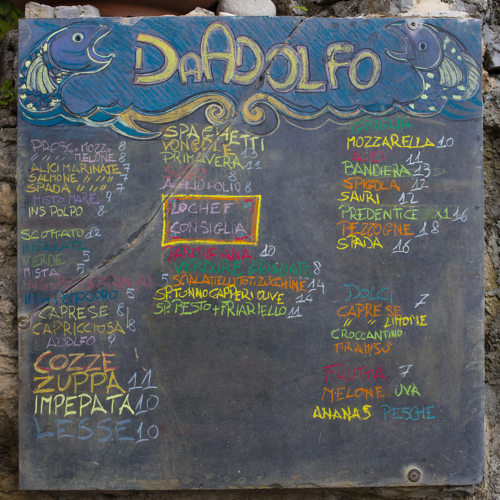 DAADOLFO
PROSC. MOZZ. 8
" " " MELONE 8
ALICI MARINATE 7
SALMONE " " " 7
SPADA " " " 7
MISTO MARE 9
INS POLPO 8
SCOTTATO 12
INSALATE
VERDE 5
MISTA 5
POMODORO 5
CAPRESE 8
CAPRICCIOSA 8
ADOLFO 9
COZZE
ZUPPA 11
IMPEPATA 10
LESSE 10
SPAGHETTI
VONGOLE 13
PRIMAVERA 11
8
AGLIO+OLIO 8
LO CHEF
CONSIGLIA
PARMIGIANA 10
VERDURE GRIGLIATE 8
SCIALATIELLI TOT. ZUCCHINE 14
SP. TUNNO CAPPERI OLIVE 14
SP. PESTO + FRIARIELLO 11
GRIGLIA
MOZZARELLA 10
ALICI 11
BANDIERA 13
SPIGOLA 12
SAURI 12
PREDENTICE X1 16
PEZZOGNE 18
SPADA 16
DOLCI 7
CAPRESE
" " LIMONE
CROCCANTINO
TIRAMISU
FRUTTA 7
MELONE UVA
ANANAS PESCHE